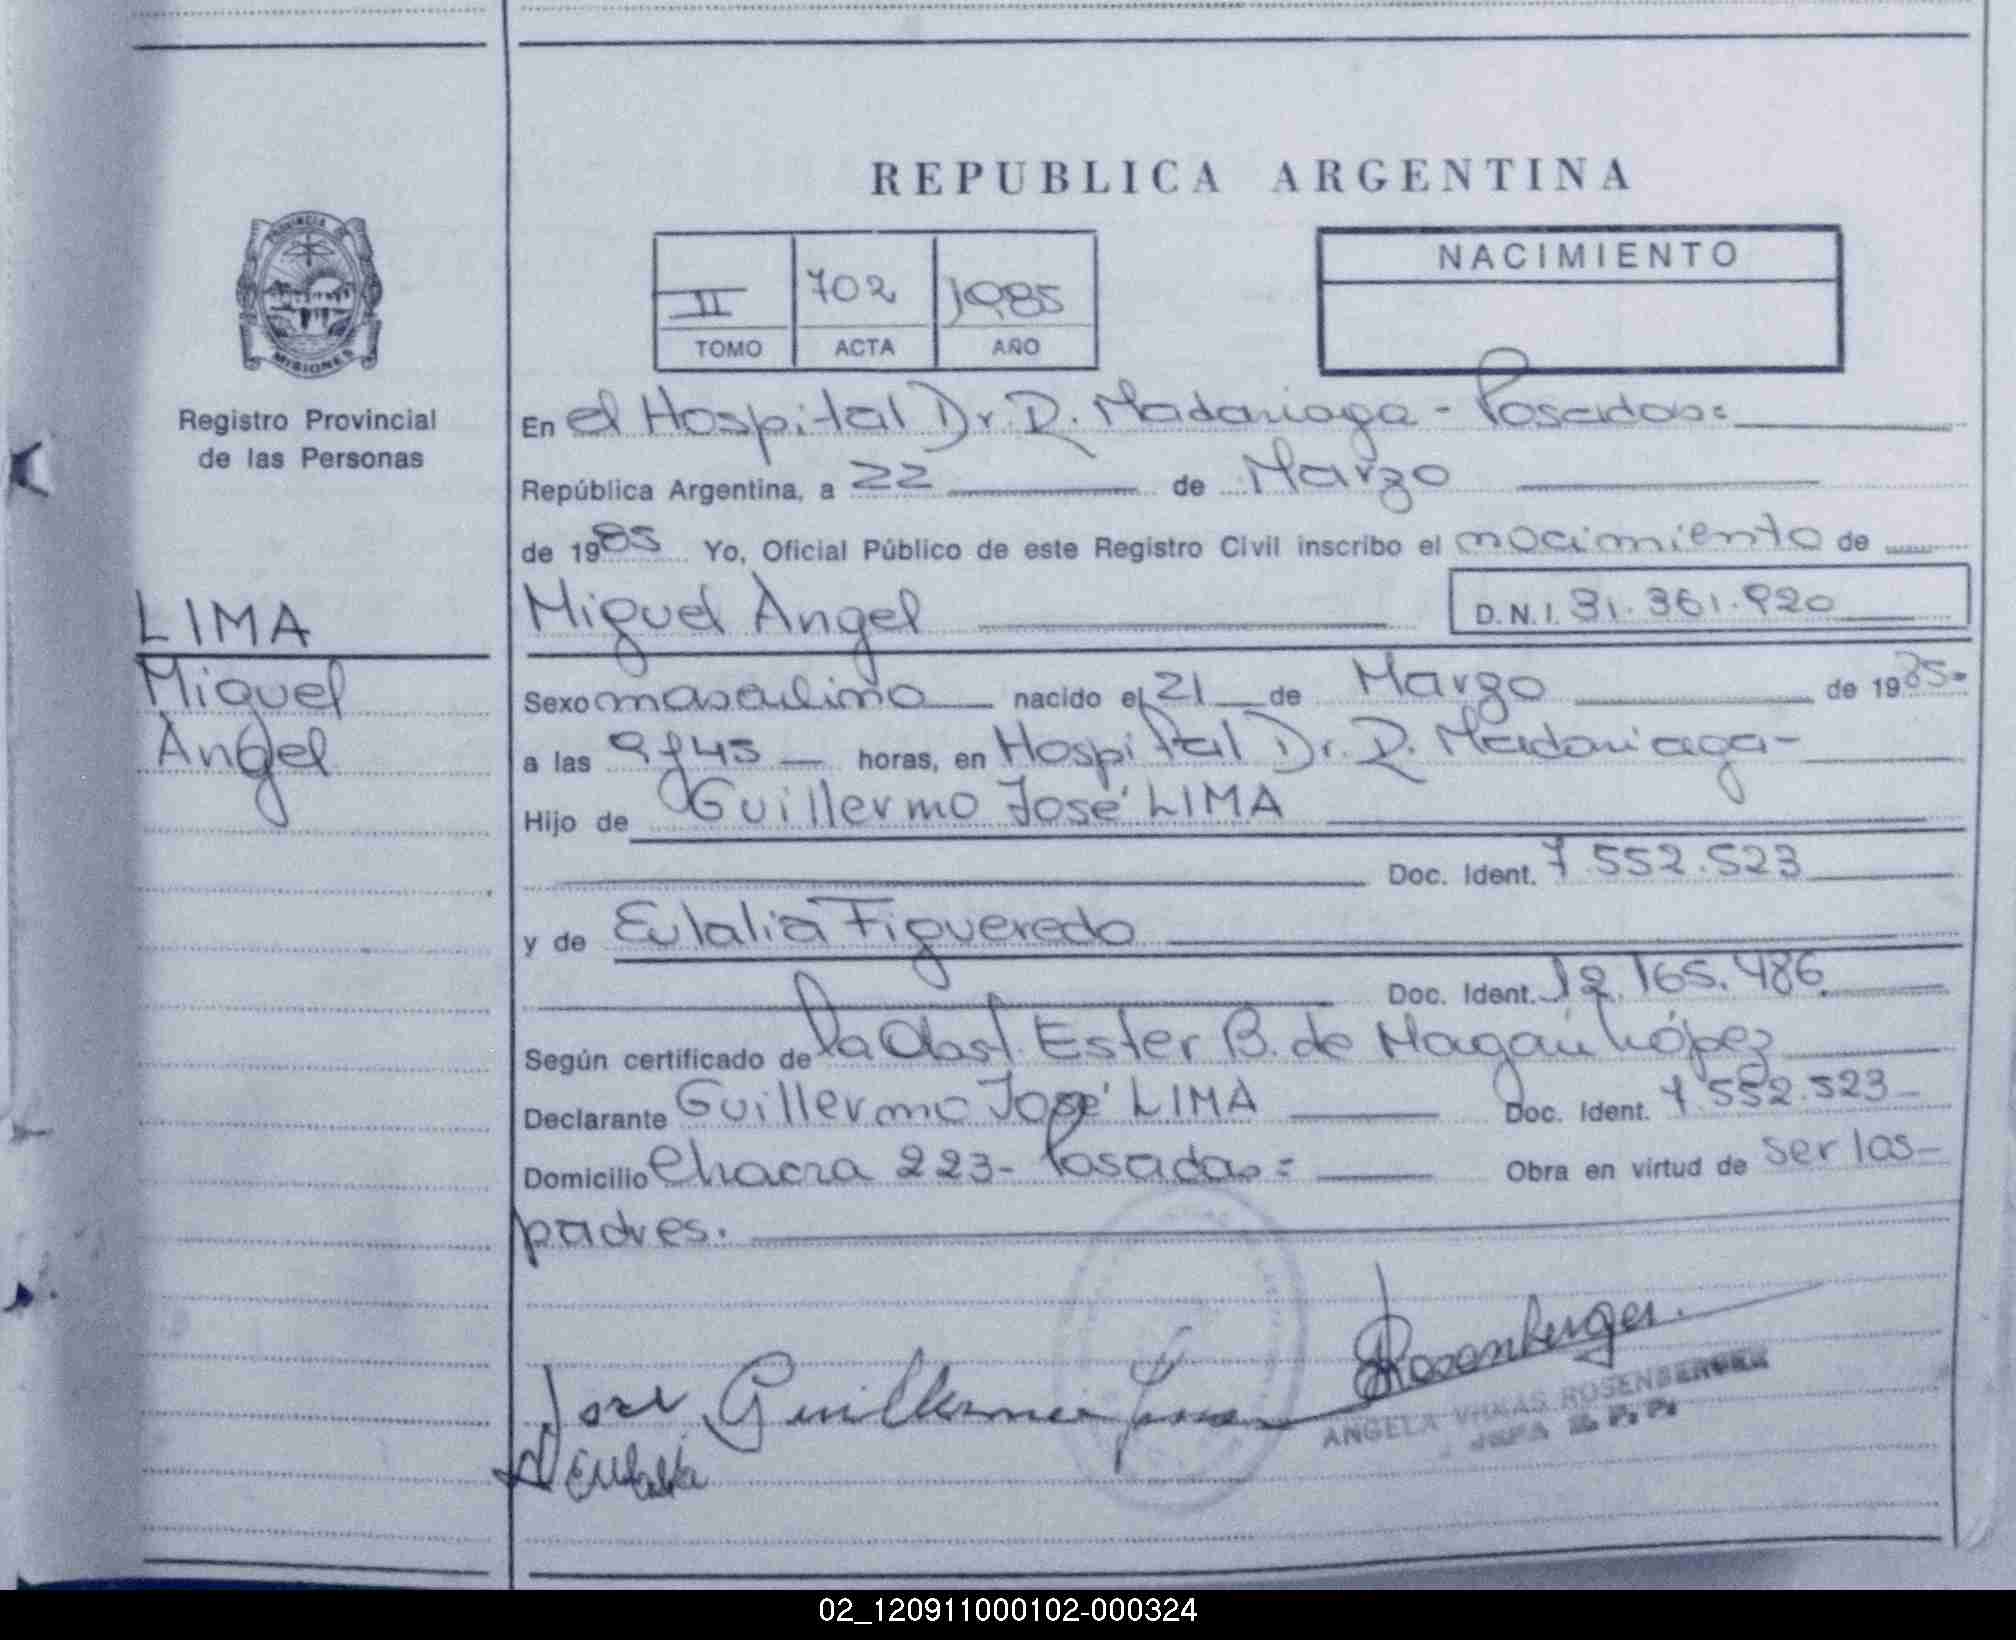 REPUBLICA ARGENTINA
PROVINCIA DE
MISIONES
Registro Provincial
de las Personas
II 702 1985
TOMO ACTA AÑO
NACIMIENTO
En el Hospital Dr. R. Madariaga - Posadas=
República Argentina, a 22 de Marzo
de 1985 Yo, Oficial Público de este Registro Civil inscribo el nacimiento de
LIMA
Miguel
Angel
Miguel Angel D.N.I. 31.361.920
Sexo masculino nacido el 21 de Marzo de 1985=
a las 9 y 45 horas, en Hospital Dr. R. Madariaga-
Hijo de Guillermo José LIMA
Doc. Ident. 7.552.523
y de Eulalia Figueredo
Doc. Ident. 12.165.486.
Según certificado de la Obst. Ester B. de López
Declarante Guillermo José LIMA Doc. Ident. 7.552.523-
Domicilio Chacra 223- Posadas= Obra en virtud de ser los-
padres.
Rosenberger.
Jose Guillermo Lima
ANGELA ROSENBERGER
JEFA R. P. P.
Eulalia
02_120911000102-000324